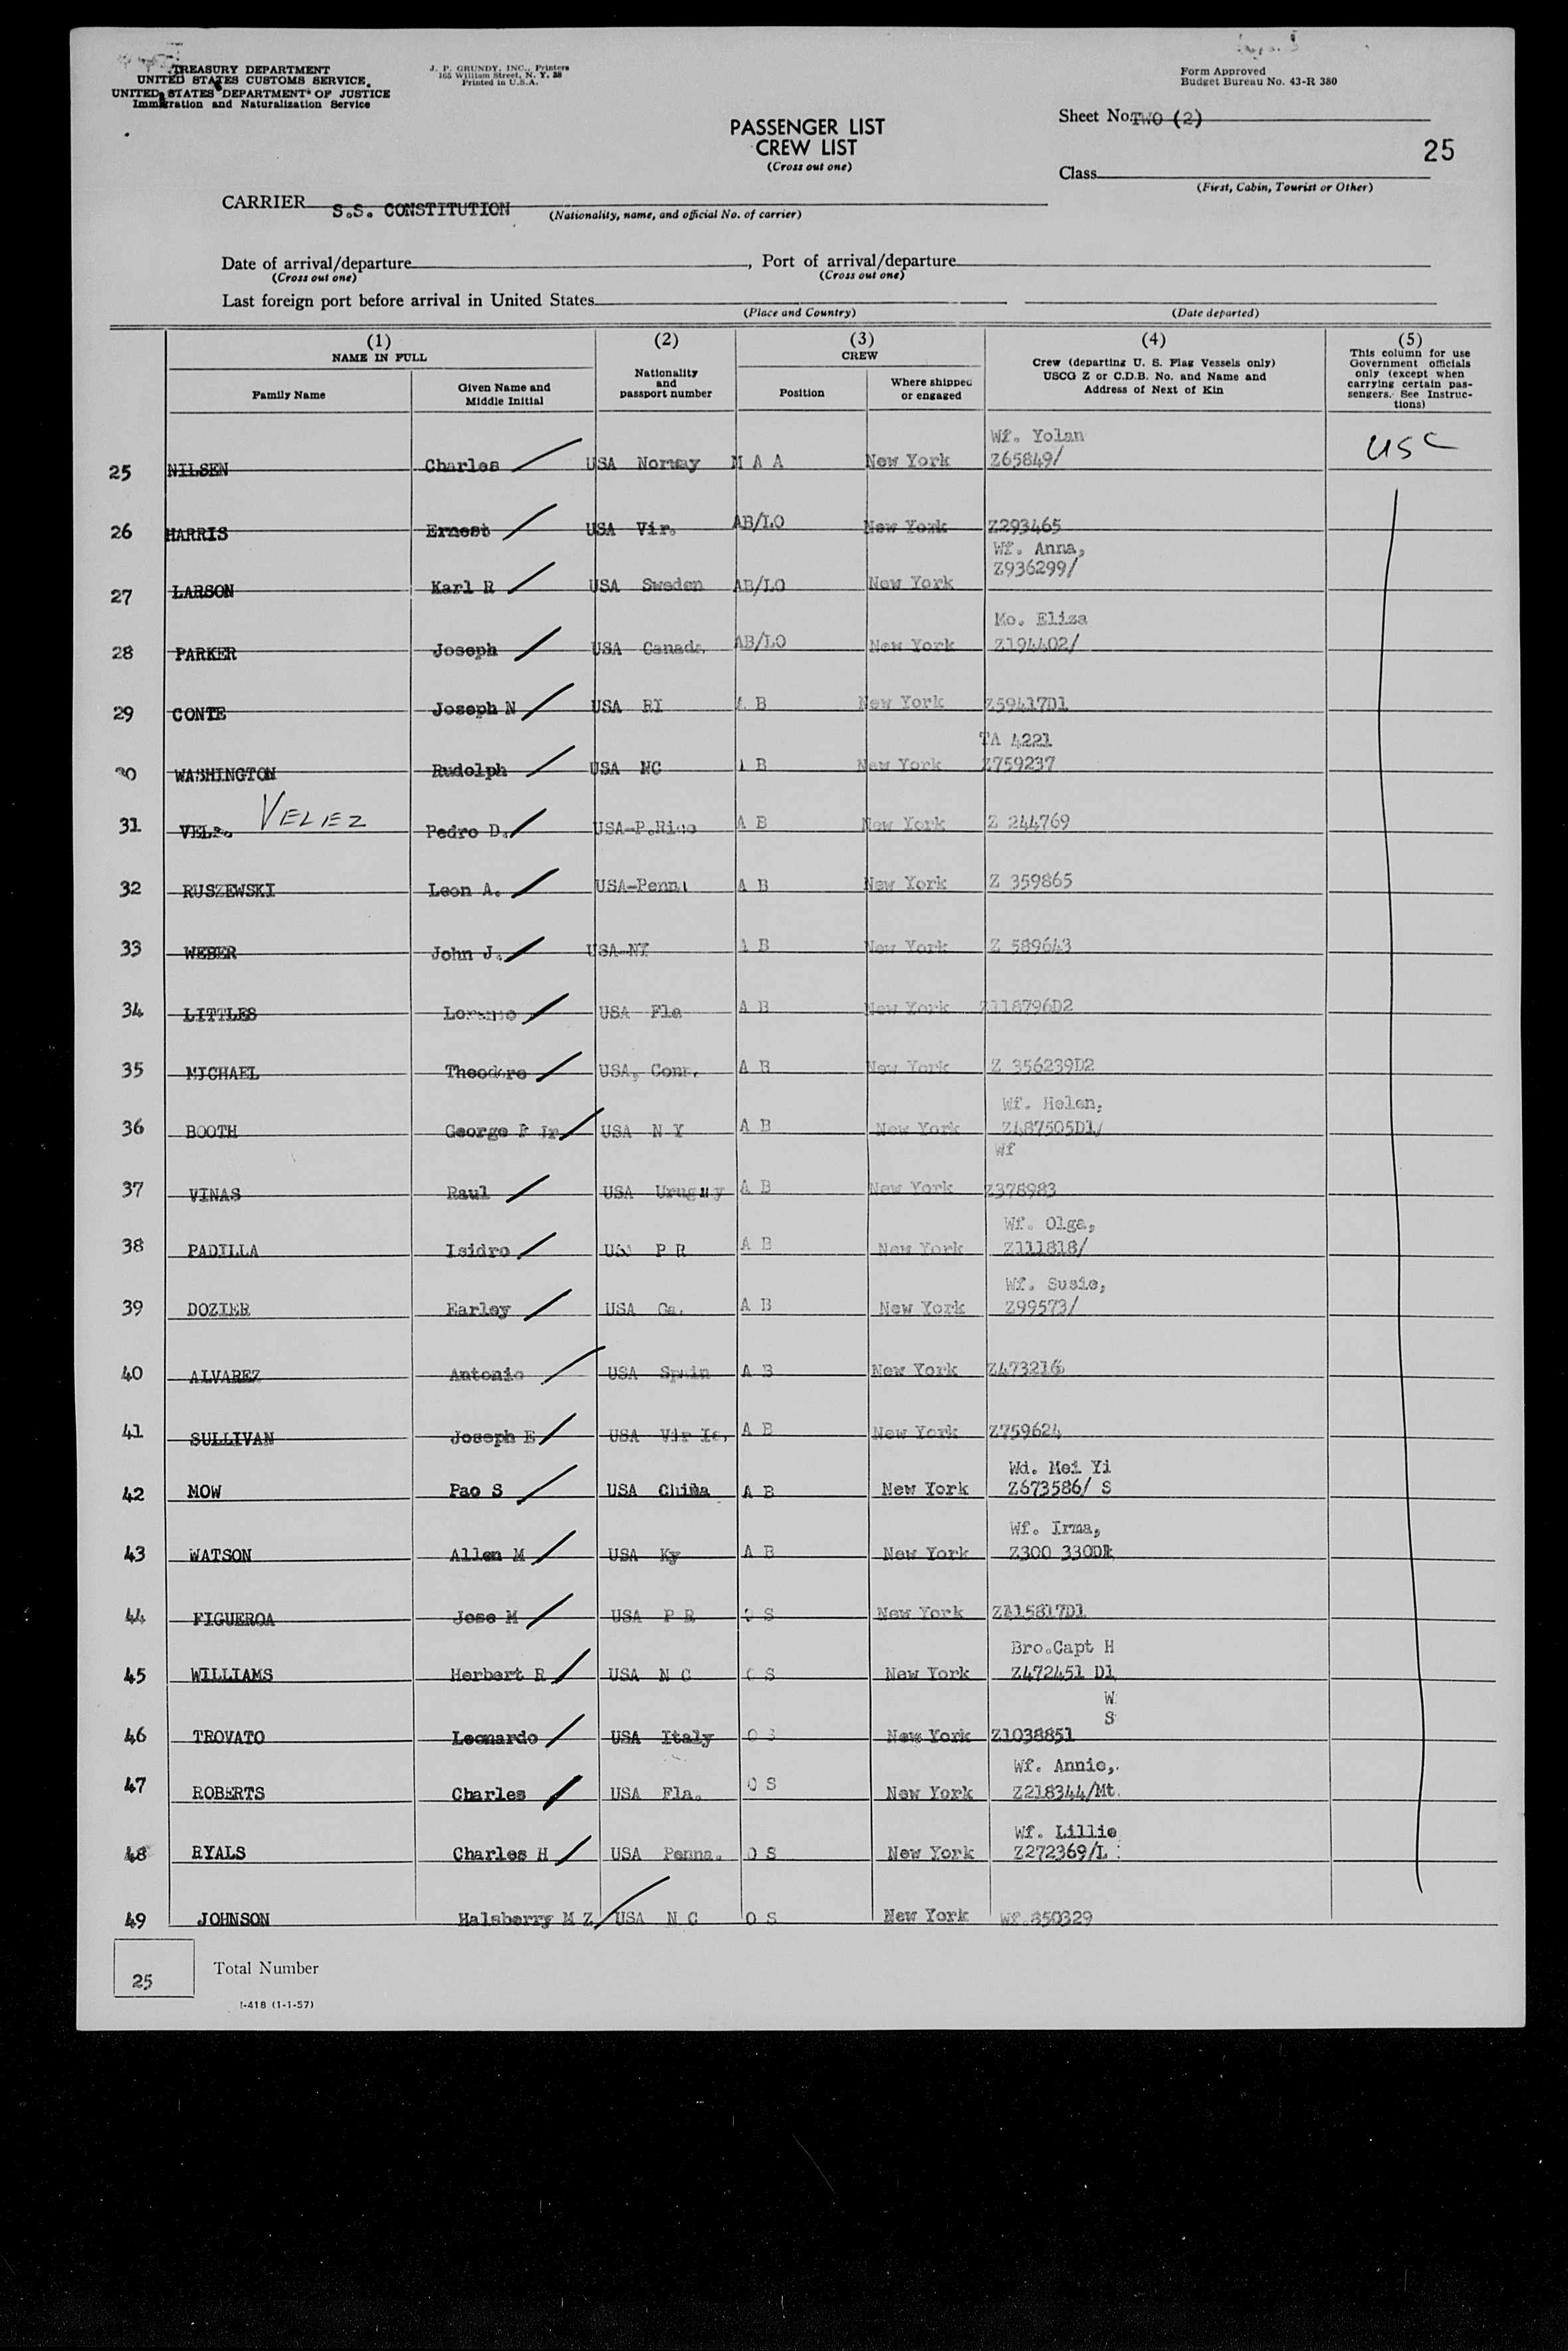 TREASURY DEPARTMENT
UNITED STATES CUSTOMS SERVICE
UNITED STATES DEPARTMENT OF JUSTICE
Immigration and Naturalization Service
J. P. GRUNDY, INC., Printers
165 William Street, N. Y. 38
Printed in U.S.A.
Form Approved
Budget Bureau No. 43-R 380
PASSENGER LIST
CREW LIST
(Cross out one)
Sheet No. TWO (2)
25
Class
(First, Cabin, Tourist or Other)
CARRIER S.S. CONSTITUTION
(Nationality, name, and official No. of carrier)
Date of arrival/departure , Port of arrival/departure
(Cross out one) (Cross out one)
Last foreign port before arrival in United States
(Place and Country) (Date departed)
(1)
NAME IN FULL
Family Name
Given Name and
Middle Initial
(2)
Nationality
and
passport number
(3)
CREW
Position
Where shipped
or engaged
(4)
Crew (departing U. S. Flag Vessels only)
USCG Z or C.D.B. No. and Name and
Address of Next of Kin
(5)
This column for use
Government officials
only (except when
carrying certain pas-
sengers. See Instruc-
tions)
Wf. Yolan
25 NILSEN Charles USA Norway M A A New York Z65849/ USC
26 HARRIS Ernest USA Vir. AB/LO New York Z293465
Wf. Anna,
Z936299/
27 LARSON Karl R USA Sweden AB/LO New York
Mo. Eliza
28 PARKER Joseph USA Canada AB/LO New York Z194402/
29 CONTE Joseph N USA RI A B New York Z59417D1
TA 4221
30 WASHINGTON Rudolph USA NC A B New York Z759237
31 VELEZ Pedro D. USA-P.Rico A B New York Z 244769
32 RUSZEWSKI Leon A. USA-Penna A B New York Z 359865
33 WEBER John J. USA-NY A B New York Z 589643
34 LITTLES USA Fla A B New York Z118796D2
35 MICHAEL Theodore USA, Conn. A B New York Z 356239D2
Wf. Helen,
36 BOOTH George R Jr USA N Y A B New York Z487505D1/
Wf
37 VINAS Raul USA Uruguay A B New York Z378983
Wf. Olga,
38 PADILLA Isidro USA P R A B New York Z111818/
Wf. Susie,
39 DOZIER Earley USA Ga. A B New York Z99573/
40 ALVAREZ Antonio USA Spain A B New York Z473216
41 SULLIVAN Joseph E USA Vir Is. A B New York Z759624
Wd. Mei Yi
42 MOW Pao S USA China A B New York Z673586/ S
Wf. Irma,
43 WATSON Allen M USA Ky A B New York Z300 330D1
44 FIGUEROA Jose M USA P R O S New York Z415817D1
Bro.Capt H
45 WILLIAMS Herbert R USA N C O S New York Z472451 D1
W
S
46 TROVATO Leonardo USA Italy O S New York Z1038851
Wf. Annie,
47 ROBERTS Charles USA Fla. O S New York Z218344/Mt.
Wf. Lillie
48 RYALS Charles H USA Penna. O S New York Z272369/L
49 JOHNSON Halsberry M Z USA N C O S New York Wf.850329
25 Total Number
I-418 (1-1-57)